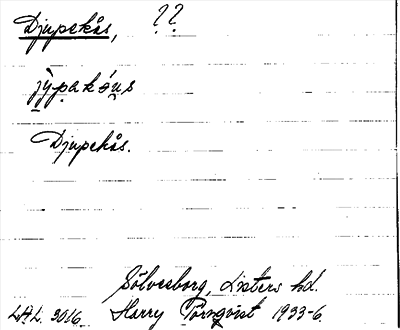 Djupekås, ??
jỳpakóus
Djupekås.
Sölvesborg, Listers hd.
L.A.L. 3016 Harry Törnqvist 1933-6